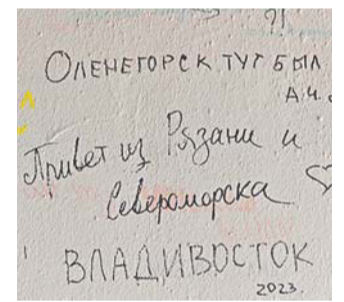 ОЛЕНЕГОРСК ТУТ БЫЛ
А.Ч.
Привет из Рязани и
Североморска
ВЛАДИВОСТОК
2023.